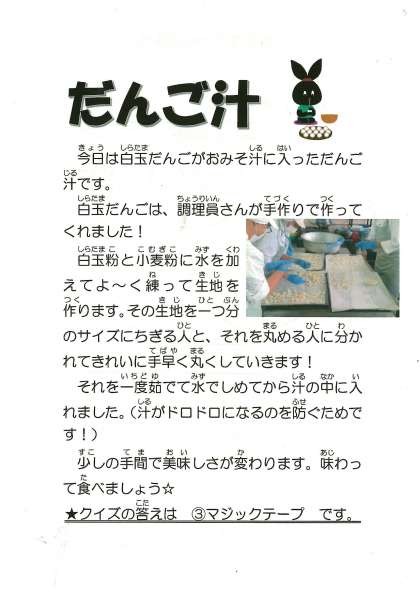 だんご汁
今日は白玉だんごがおみそ汁に入っただんご
汁です。
白玉だんごは、調理員さんが手作りで作って
くれました!
白玉粉と小麦粉に水を加
えてよ~く練って生地を
作ります。その生地を一つ分
のサイズにちぎる人と、それを丸める人に分か
れてきれいに手早く丸くしていきます!
それを一度茹でて水でしめてから汁の中に入
れました。(汁がドロドロになるのを防ぐためで
す!)
少しの手間で美味しさが変わります。味わっ
て食べましょう☆
★クイズの答えは ③マジックテープ です。